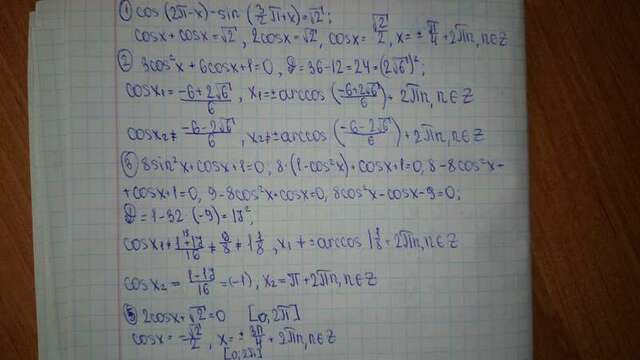 ① cos(2π-x)-sin(3/2π+x)=√2;
cosx+cosx=√2, 2cosx=√2, cosx=√2/2, x=±π/4+2πn, n∈Z
② 3cos²x+6cosx+1=0, D=36-12=24=(2√6)²;
cosx₁=(-6+2√6)/6, x₁=±arccos((-6+2√6)/6)+2πn, n∈Z
cosx₂≠(-6-2√6)/6, x₂≠±arccos((-6-2√6)/6)+2πn, n∈Z
③ 8sin²x+cosx+1=0, 8·(1-cos²x)+cosx+1=0, 8-8cos²x+
+cosx+1=0, 9-8cos²x+cosx=0, 8cos²x-cosx-9=0;
D=1-32·(-9)=17²;
cosx₁≠(1+17)/16≠9/8≠1 1/8, x₁≠±arccos 1 1/8+2πn, n∈Z
cosx₂=(1-17)/16=(-1), x₂=π+2πn, n∈Z
⑤ 2cosx+√2=0 [0,2π]
cosx=-√2/2, x=±3π/4+2πn, n∈Z
[0,2π]